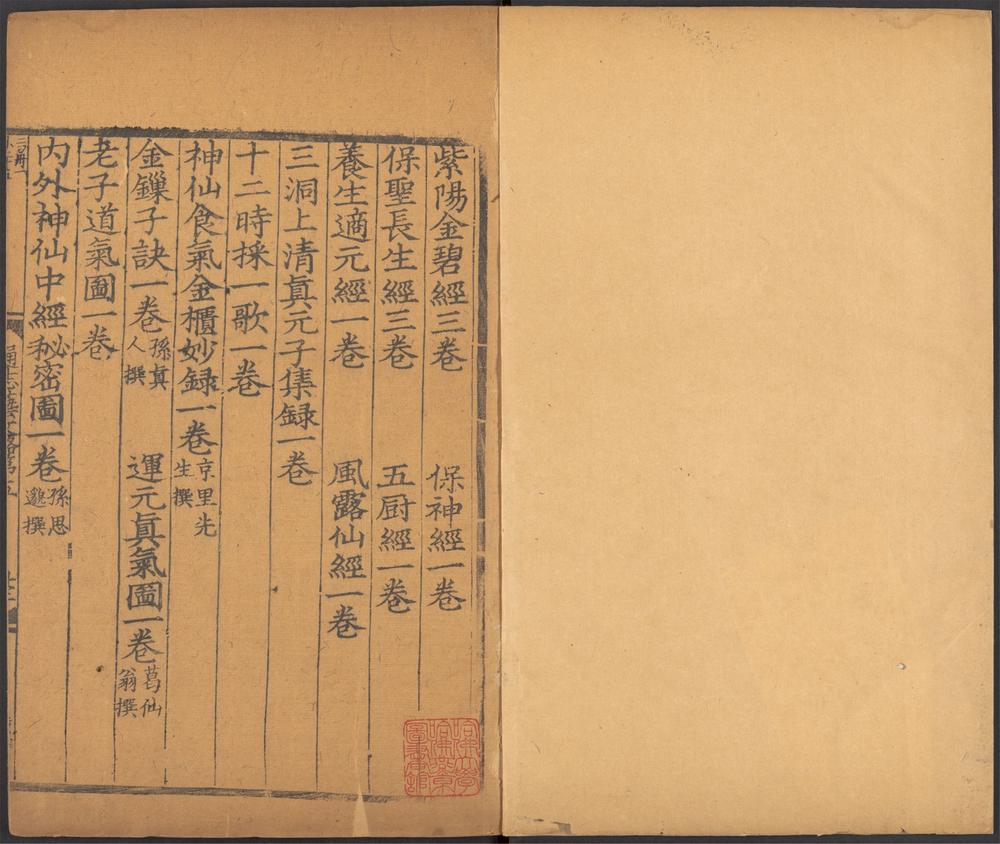 紫陽金碧經三卷　保神經一卷
保聖長生經三卷　五厨經一卷
養生適元經一卷　風露仙經一卷
三洞上清眞元子集録一卷
十二時採一歌一卷
神仙食氣金櫃妙録一卷京里先生撰
金鏁子訣一卷孫眞人撰　運元眞氣圗一卷葛仙翁撰
老子道氣圗一卷
内外神仙中經秘密圗一卷孫思邈撰
通志藝文畧第五
哈佛大學哈佛燕京圖書館